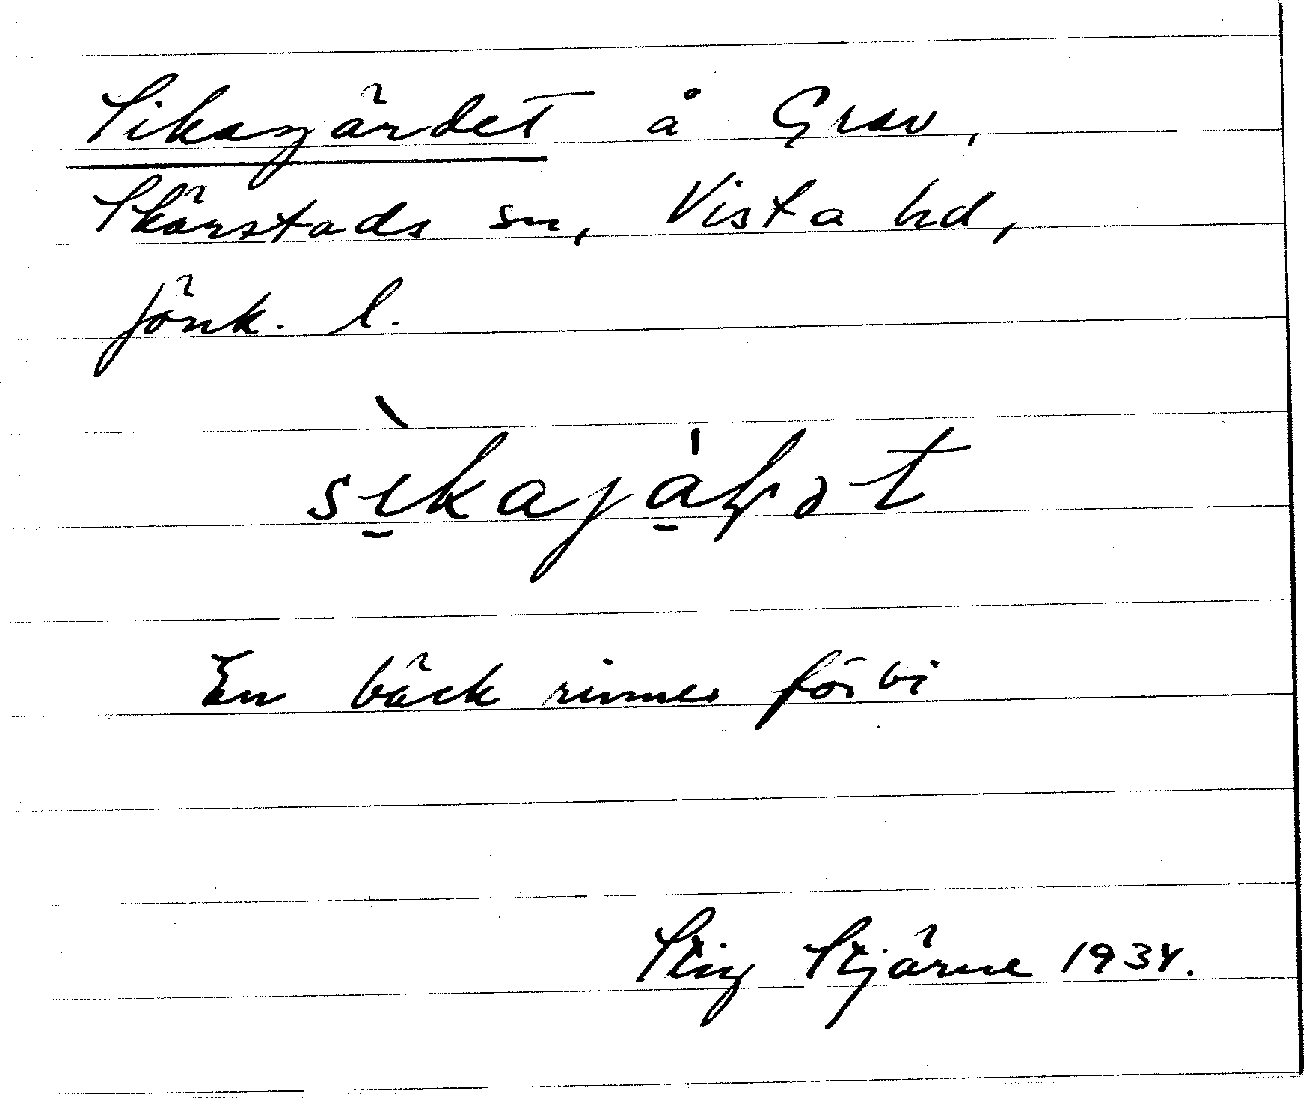 Sikagärdet å Grav,
Skärstads sn, Vista hd,
Jönk. l.
En bäck rinner förbi
Stig Stjärne 1934.